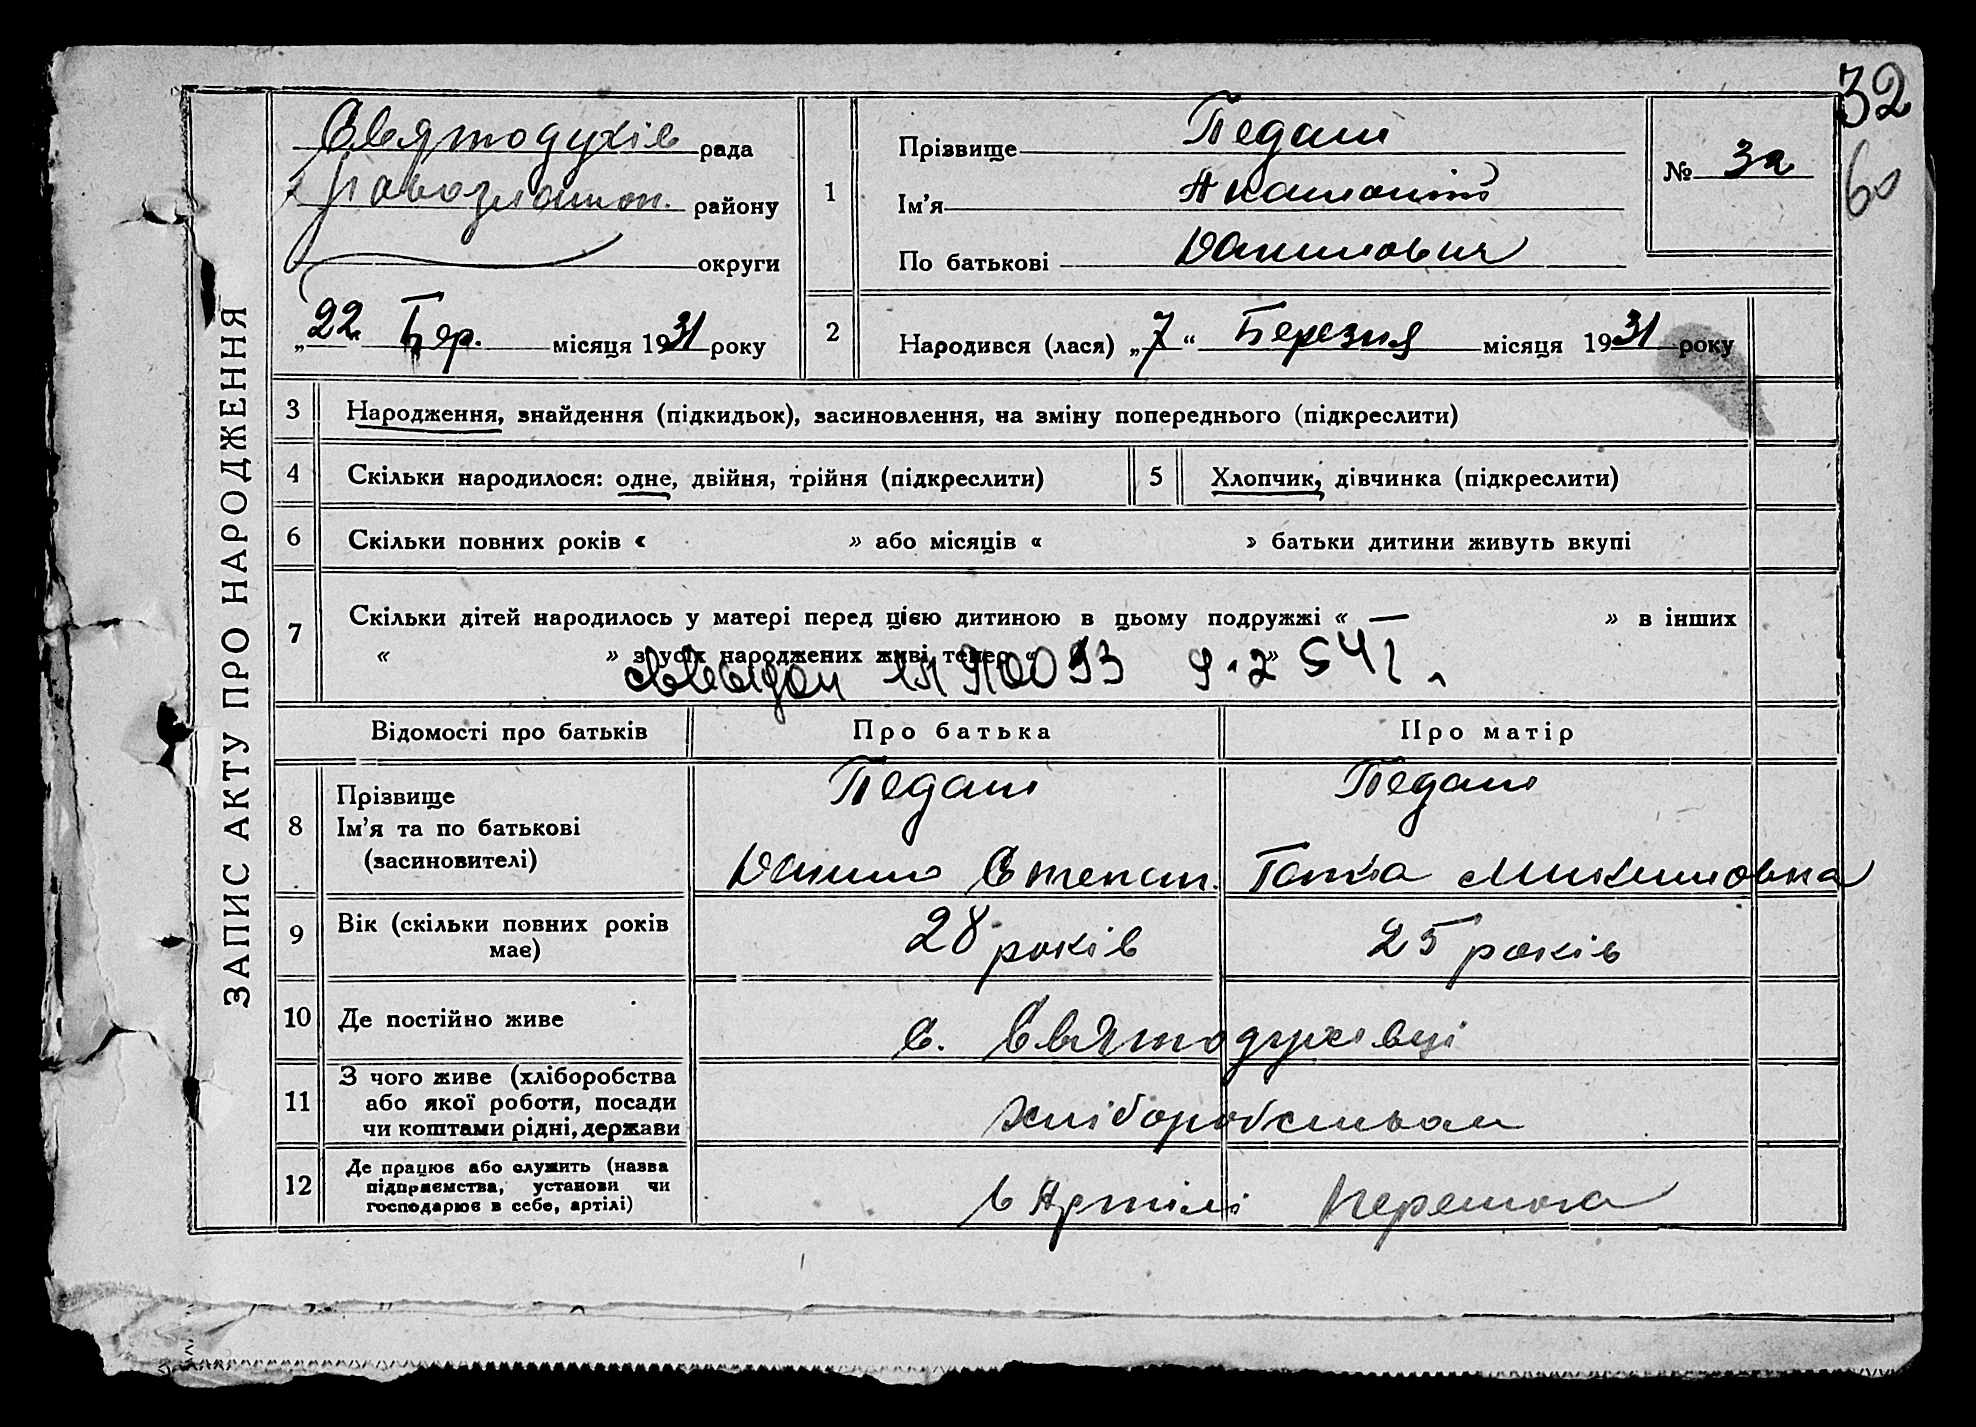 32
60
ЗАПИС АКТУ ПРО НАРОДЖЕННЯ
Святодухів рада
району
округи
„22“ Бер. місяця 1931 року
1
Прізвище Педаш
Ім'я Анатолій
По батькові Данилович
№ 32
2
Народився (лася) „7“ Березня місяця 1931 року
3 Народження, знайдення (підкидьок), засиновлення, на зміну попереднього (підкреслити)
4 Скільки народилося: одне, двійня, трійня (підкреслити)
5 Хлопчик, дівчинка (підкреслити)
6 Скільки повних років « » або місяців « » батьки дитини живуть вкупі
7 Скільки дітей народилось у матері перед цією дитиною в цьому подружжі « — » в інших
« » з усіх народжених живі тепер « »
9.2 54 г.
Відомості про батьків Про батька Про матір
8 Прізвище
Ім'я та по батькові
(засиновителі)
Педаш
Данило Степан.
Педаш
Ганка Микиловна
9 Вік (скільки повних років
має)
28 років
25 років
10 Де постійно живе
с. Святодухівці
11 З чого живе (хліборобства
або якої роботи, посади
чи коштами рідні, держави
хліборобством
12 Де працює або служить (назва
підприємства, установи чи
господарює в себе, артілі)
в Артілі Перемога